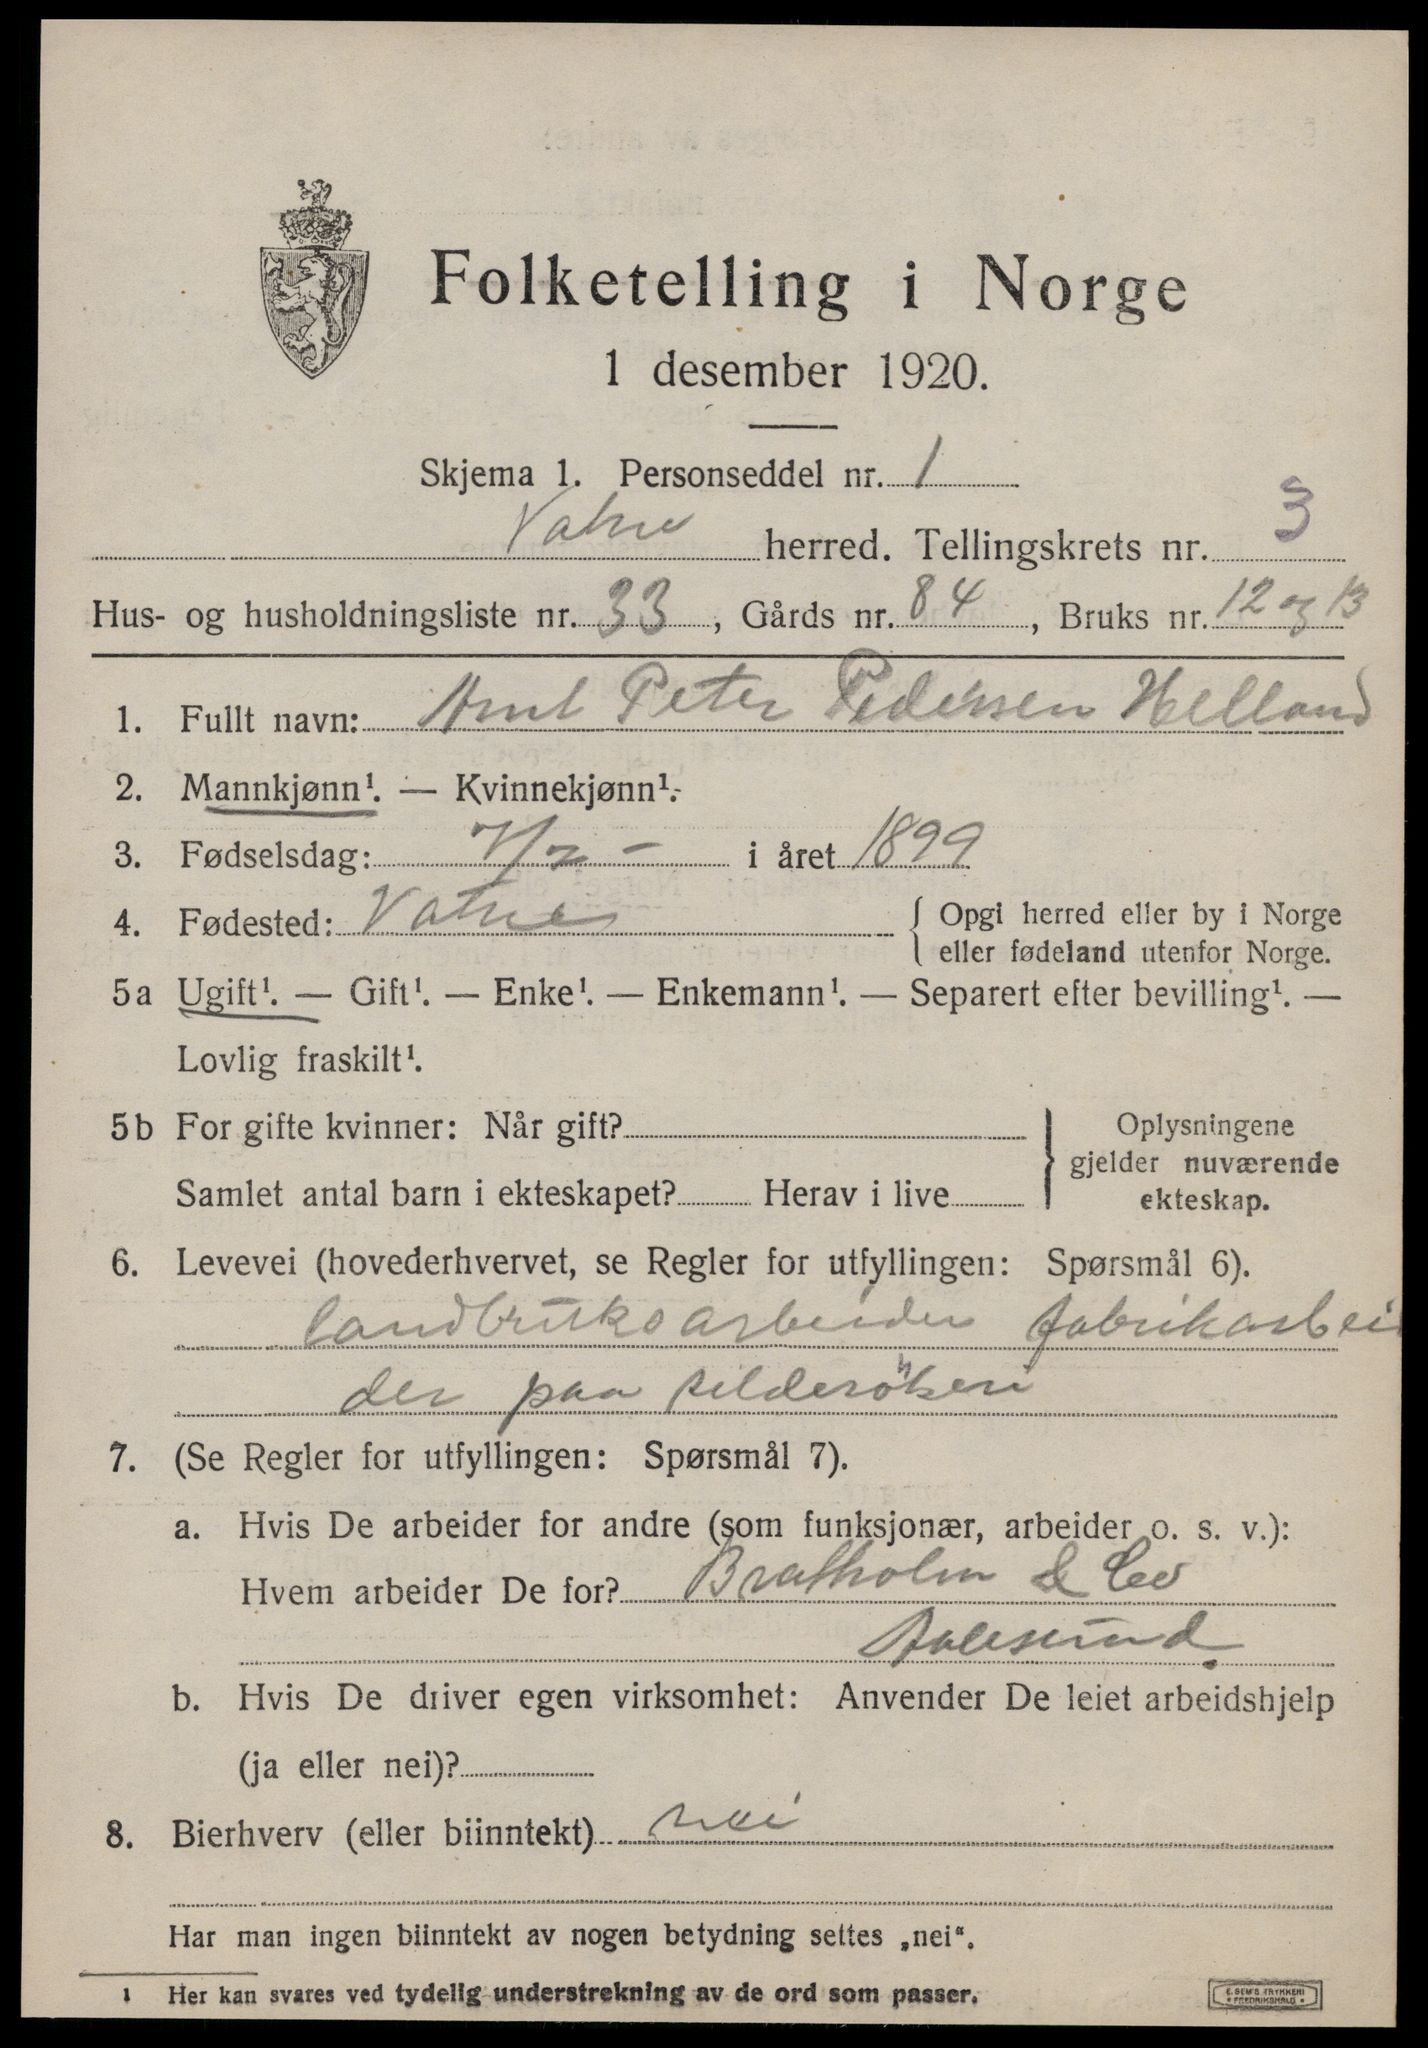 Folketelling i Norge
1 desember 1920.
Skjema 1. Personseddel nr. 1
Vatne herred. Tellingskrets nr. 3
Hus- og husholdningsliste nr. 33, Gårds nr. 84, Bruks nr. 12 og 13
1. Fullt navn: Arnt Peter Pedersen Helland
2. Mannkjønn¹. — Kvinnekjønn¹.
3. Fødselsdag: 7/7 – i året 1899
4. Fødested: Vatne { Opgi herred eller by i Norge
eller fødeland utenfor Norge.
5a Ugift¹. — Gift¹. — Enke¹. — Enkemann¹. — Separert efter bevilling¹. —
Lovlig fraskilt¹.
5b For gifte kvinner: Når gift? } Oplysningene
gjelder nuværende
Samlet antal barn i ekteskapet? Herav i live
ekteskap.
6. Levevei (hovederhvervet, se Regler for utfyllingen: Spørsmål 6).
landbruksarbeider fabrikarbei
der paa
7. (Se Regler for utfyllingen: Spørsmål 7).
a. Hvis De arbeider for andre (som funksjonær, arbeider o. s. v.):
Hvem arbeider De for? Bratholm & Co
Aalesund.
b. Hvis De driver egen virksomhet: Anvender De leiet arbeidshjelp
(ja eller nei)?
8. Bierhverv (eller biinntekt) nei
Har man ingen biinntekt av nogen betydning settes „nei“.
1 Her kan svares ved tydelig understrekning av de ord som passer.
E. SEM'S TRYKKERI
* FREDRIKSHALD *